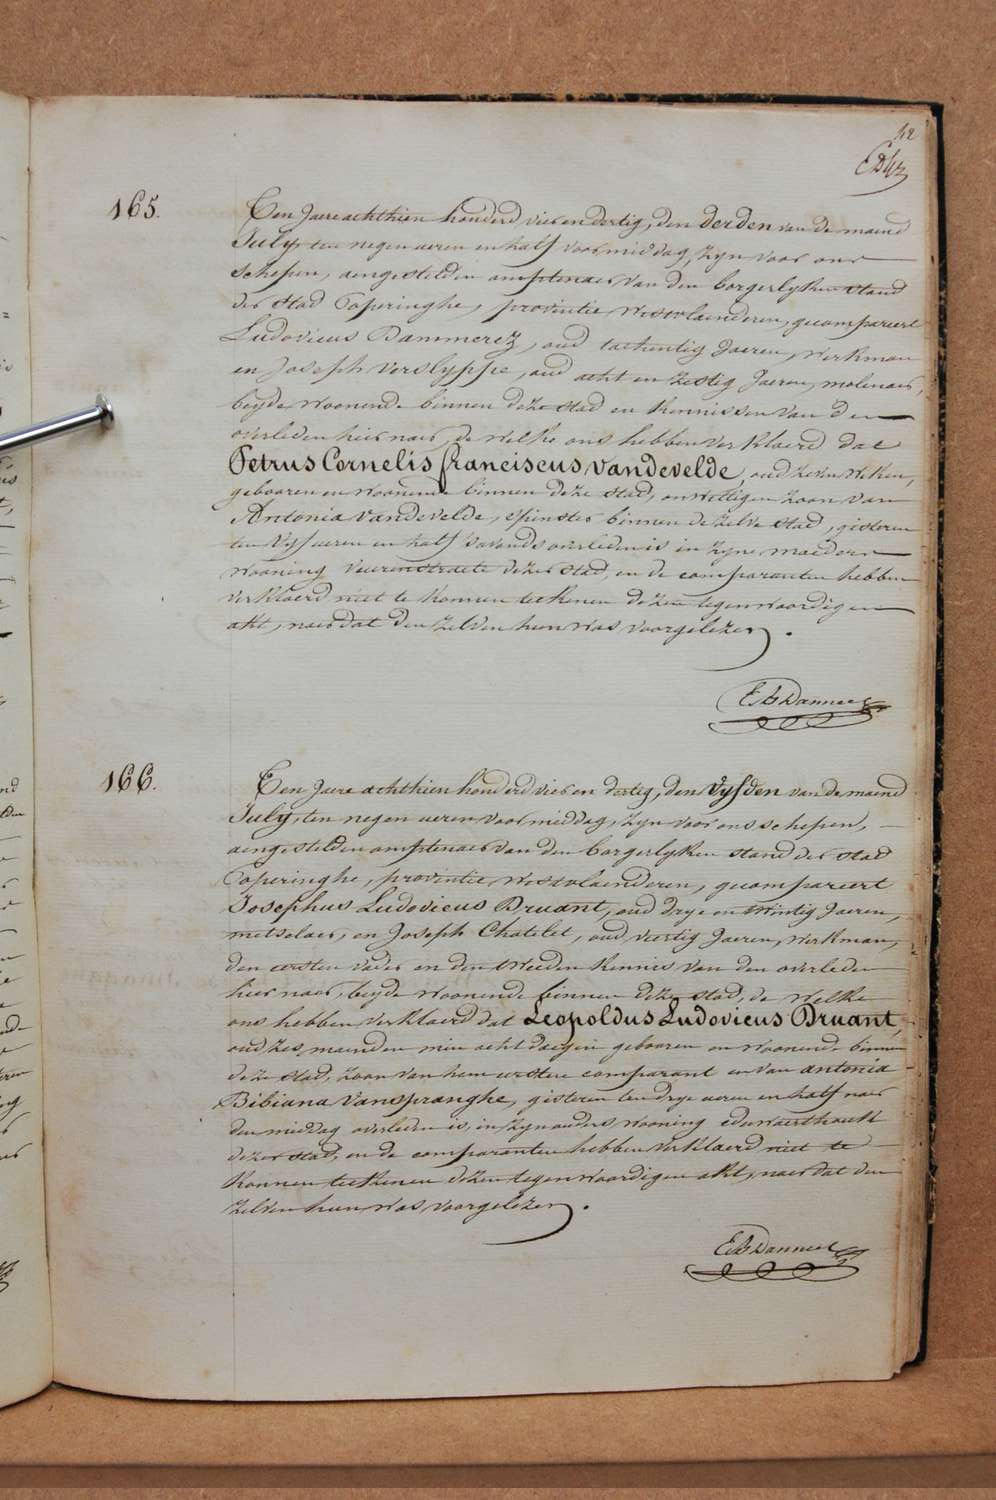 42
165.
Ten Jaere achthien honderd vier en dertig, den derden van de maend
July, ten negen ueren en half voormiddag, zyn voor ons
schepen, aengestelden amptenaer van den borgerlyken stand
der stad Poperinghe, provintie Westvlaenderen, gecompareert
Ludovicus Dammerez, oud tachentig Jaeren, werkman
en Joseph Verslyppe, oud acht en zestig Jaeren, molenaer,
beyde woonende binnen deze stad en kennissen van den
overleden hier naer, de welke ons hebben verklaerd dat
Petrus Cornelis franciscus vandevelde, oud zeven weken,
gebooren en woonende binnen deze stad, onwettigen zoon van
Antonia vandevelde, spinster binnen dezelve stad, gisteren
ten vyf ueren en half s'avonds overleden is in zyne moeders
wooning veurenstraete dezer stad, en de comparanten hebben
verklaerd niet te konnen teekenen dezen tegenwoordigen
akt, naer dat den zelven hun was voorgelezen.
E B Danneel
166.
Ten Jaere achthien honderd vier en dertig, den vyfden van de maend
July, ten negen ueren voormiddag, zyn voor ons schepen,
aengestelden amptenaer van den borgerlyken stand der stad
Poperinghe, provintie Westvlaenderen, gecompareert
Josephus Ludovicus Druant, oud drye en twintig Jaeren,
metselaer, en Joseph Chatelet, oud veertig Jaeren, werkman,
den eersten vader en den tweeden kennis van den overleden
hier naer, beyde woonende binnen deze stad, de welke
ons hebben verklaerd dat Leopoldus Ludovicus Druant,
oud zes maenden min acht daegen gebooren en woonende binnen
deze stad, zoon van hem eersten comparant en van antonia
Bibiana Vanspranghe, gisteren ten drye ueren en half naer
den middag overleden is, in zyn ouders wooning edewaerthoek
dezer stad, en de comparanten hebben verklaerd niet te
konnen teekenen dezen tegenwoordigen akt, naer dat den
zelven hun was voorgelezen.
E B Danneel